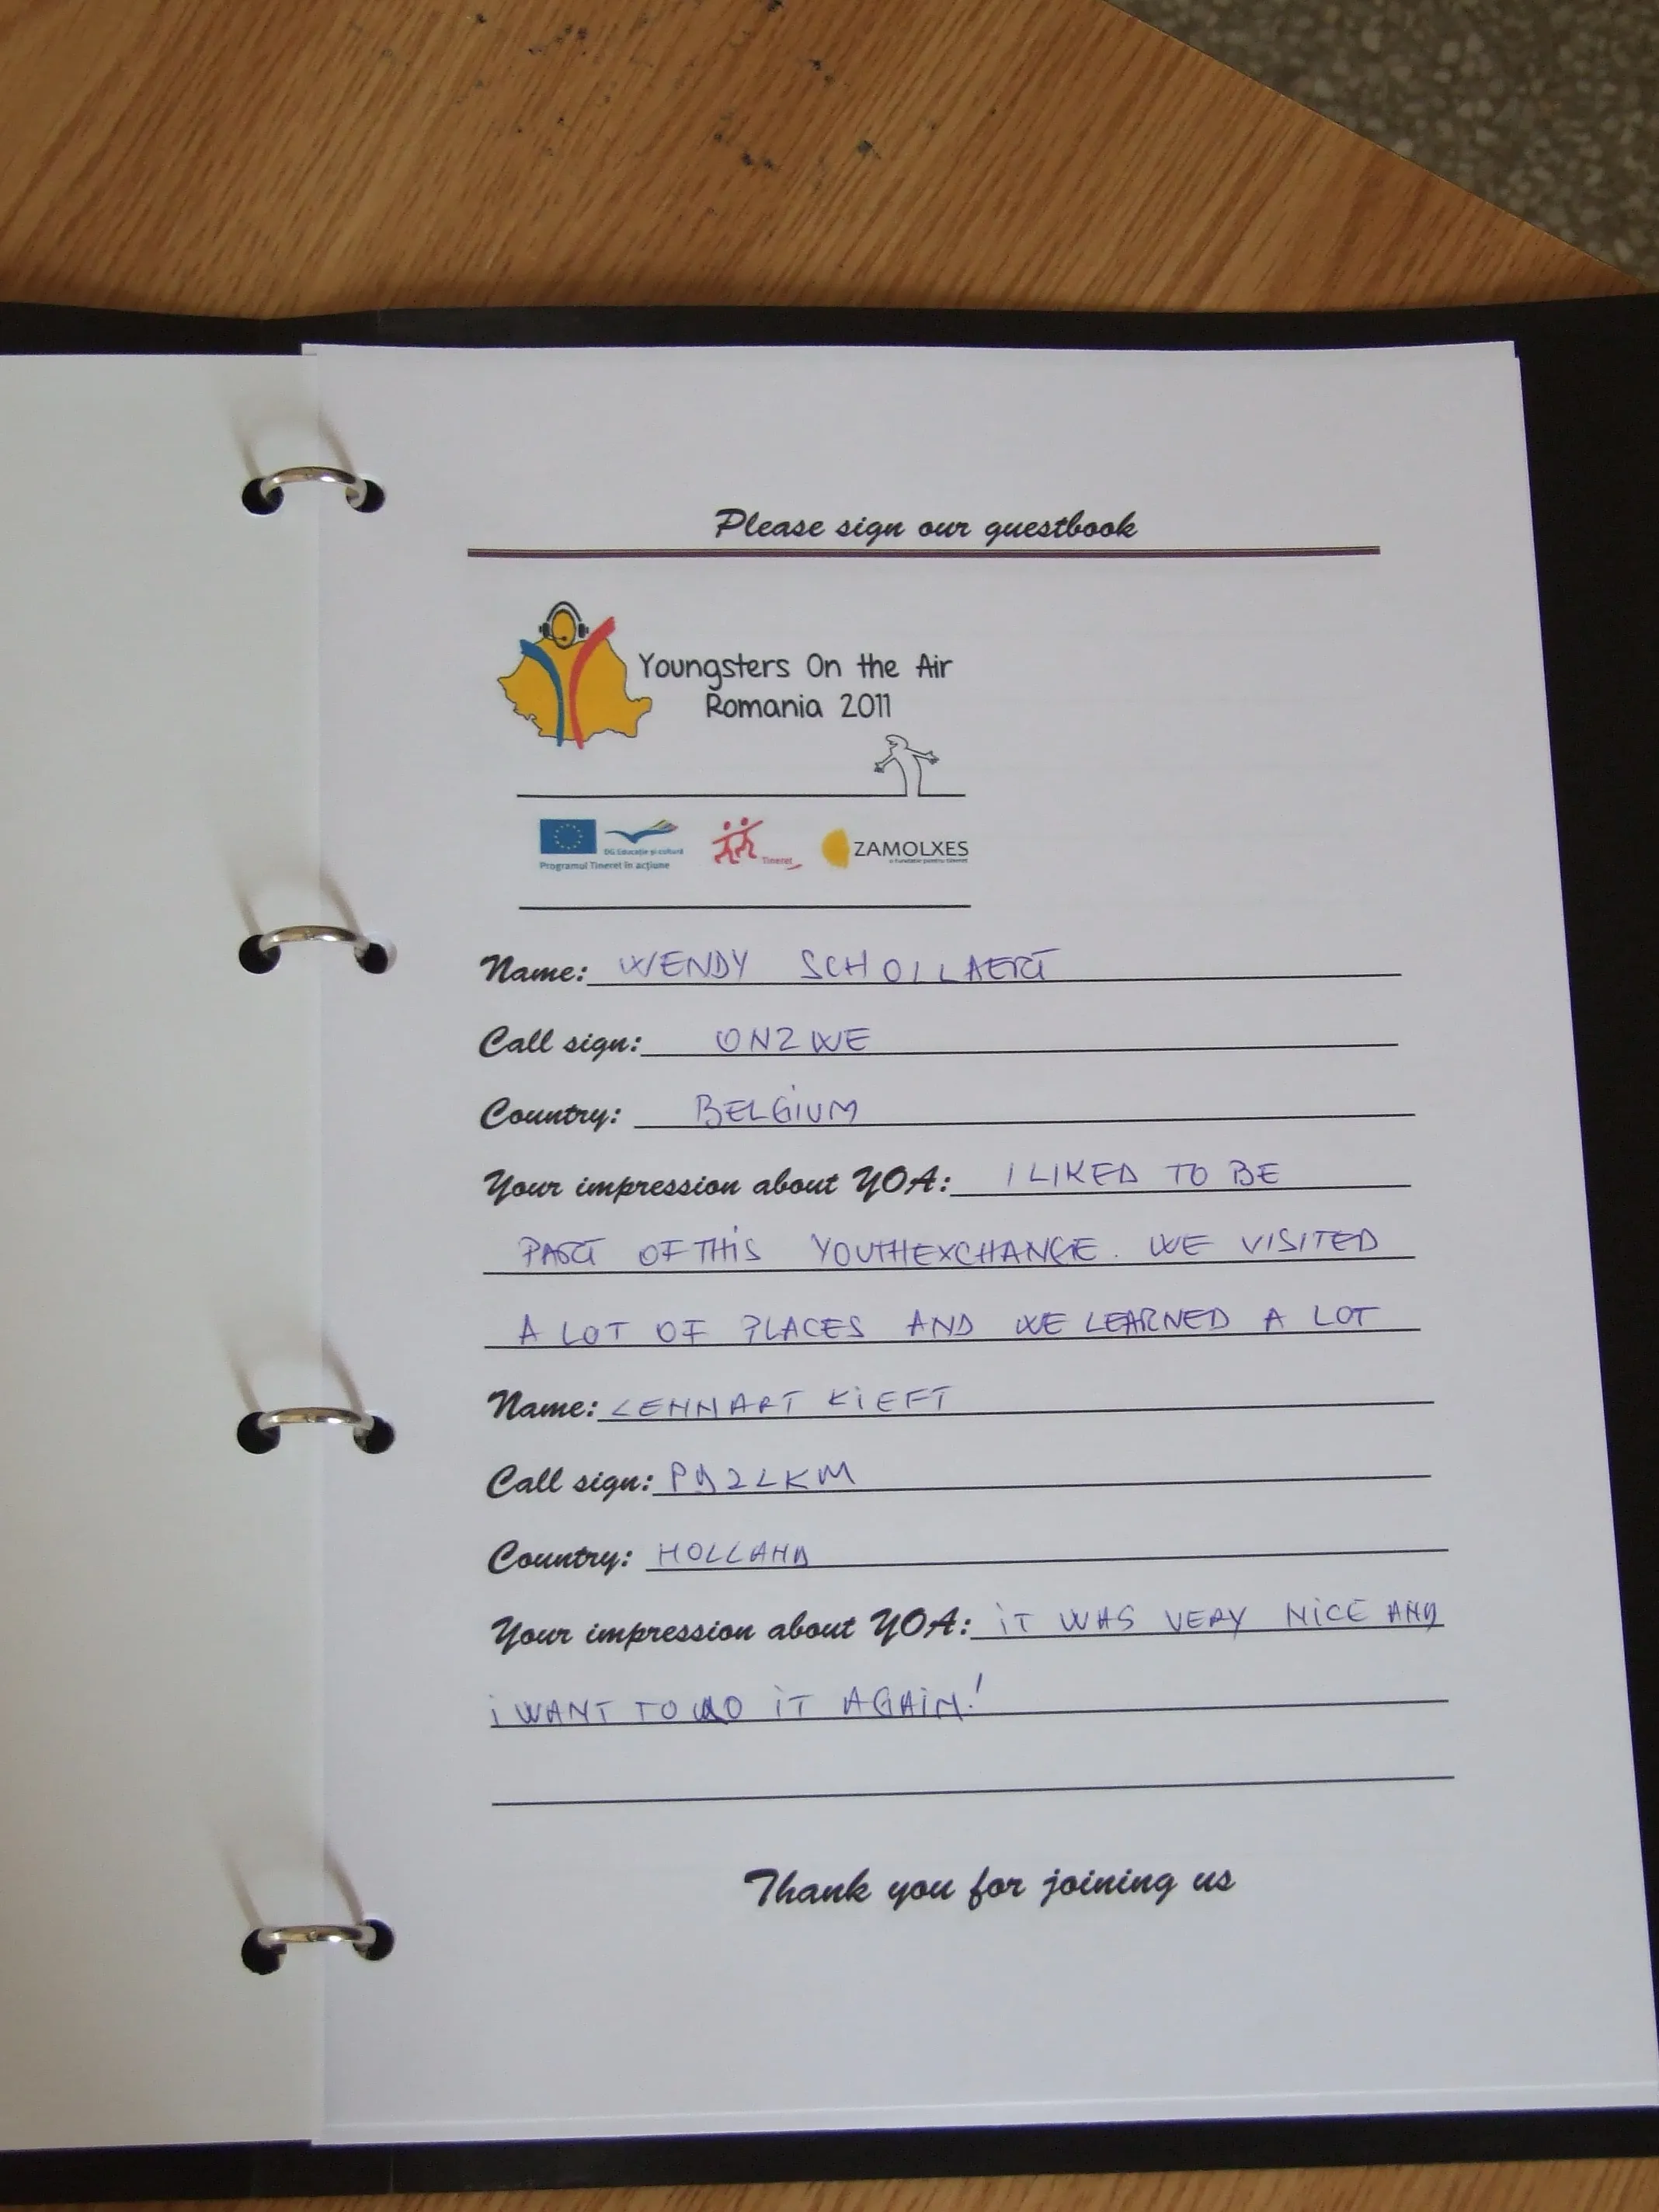 Please sign our guestbook
Youngsters On the Air
Romania 2011
DG Educație și cultură
Programul Tineret în acțiune
Tineret
ZAMOLXES
o fundație pentru tineret
Name: WENDY SCHOLLAERT
Call sign: ON2WE
Country: BELGIUM
Your impression about YOA: I LIKED TO BE
PART OF THIS YOUTHEXCHANGE. WE VISITED
A LOT OF PLACES AND WE LEARNED A LOT
Name: LENNART KIEFT
Call sign: PD2LKM
Country: HOLLAND
Your impression about YOA: IT WAS VERY NICE AND
i WANT TO DO IT AGAIN!
Thank you for joining us